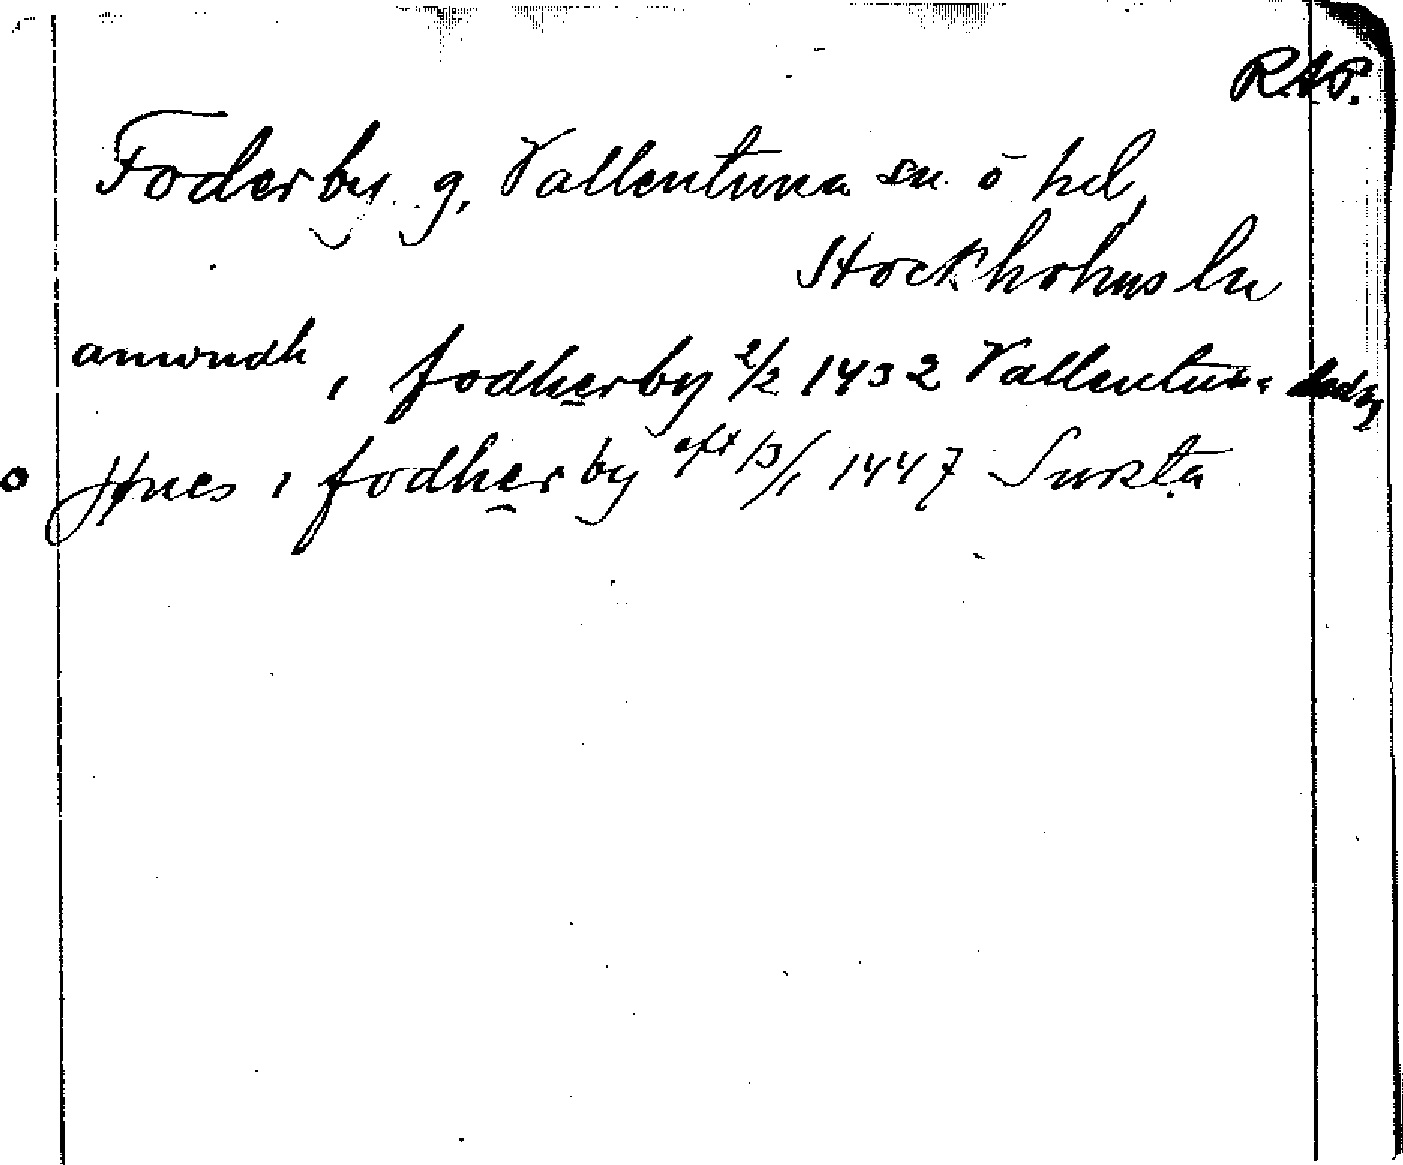 R.A.P.
Foderby g, Vallentuna sn. o hd,
Stockholms ln
anwndh
i fodherby 2/2 1432 Vallentuna
o Jönes i fodherby eft 13/1 1447 Sursta